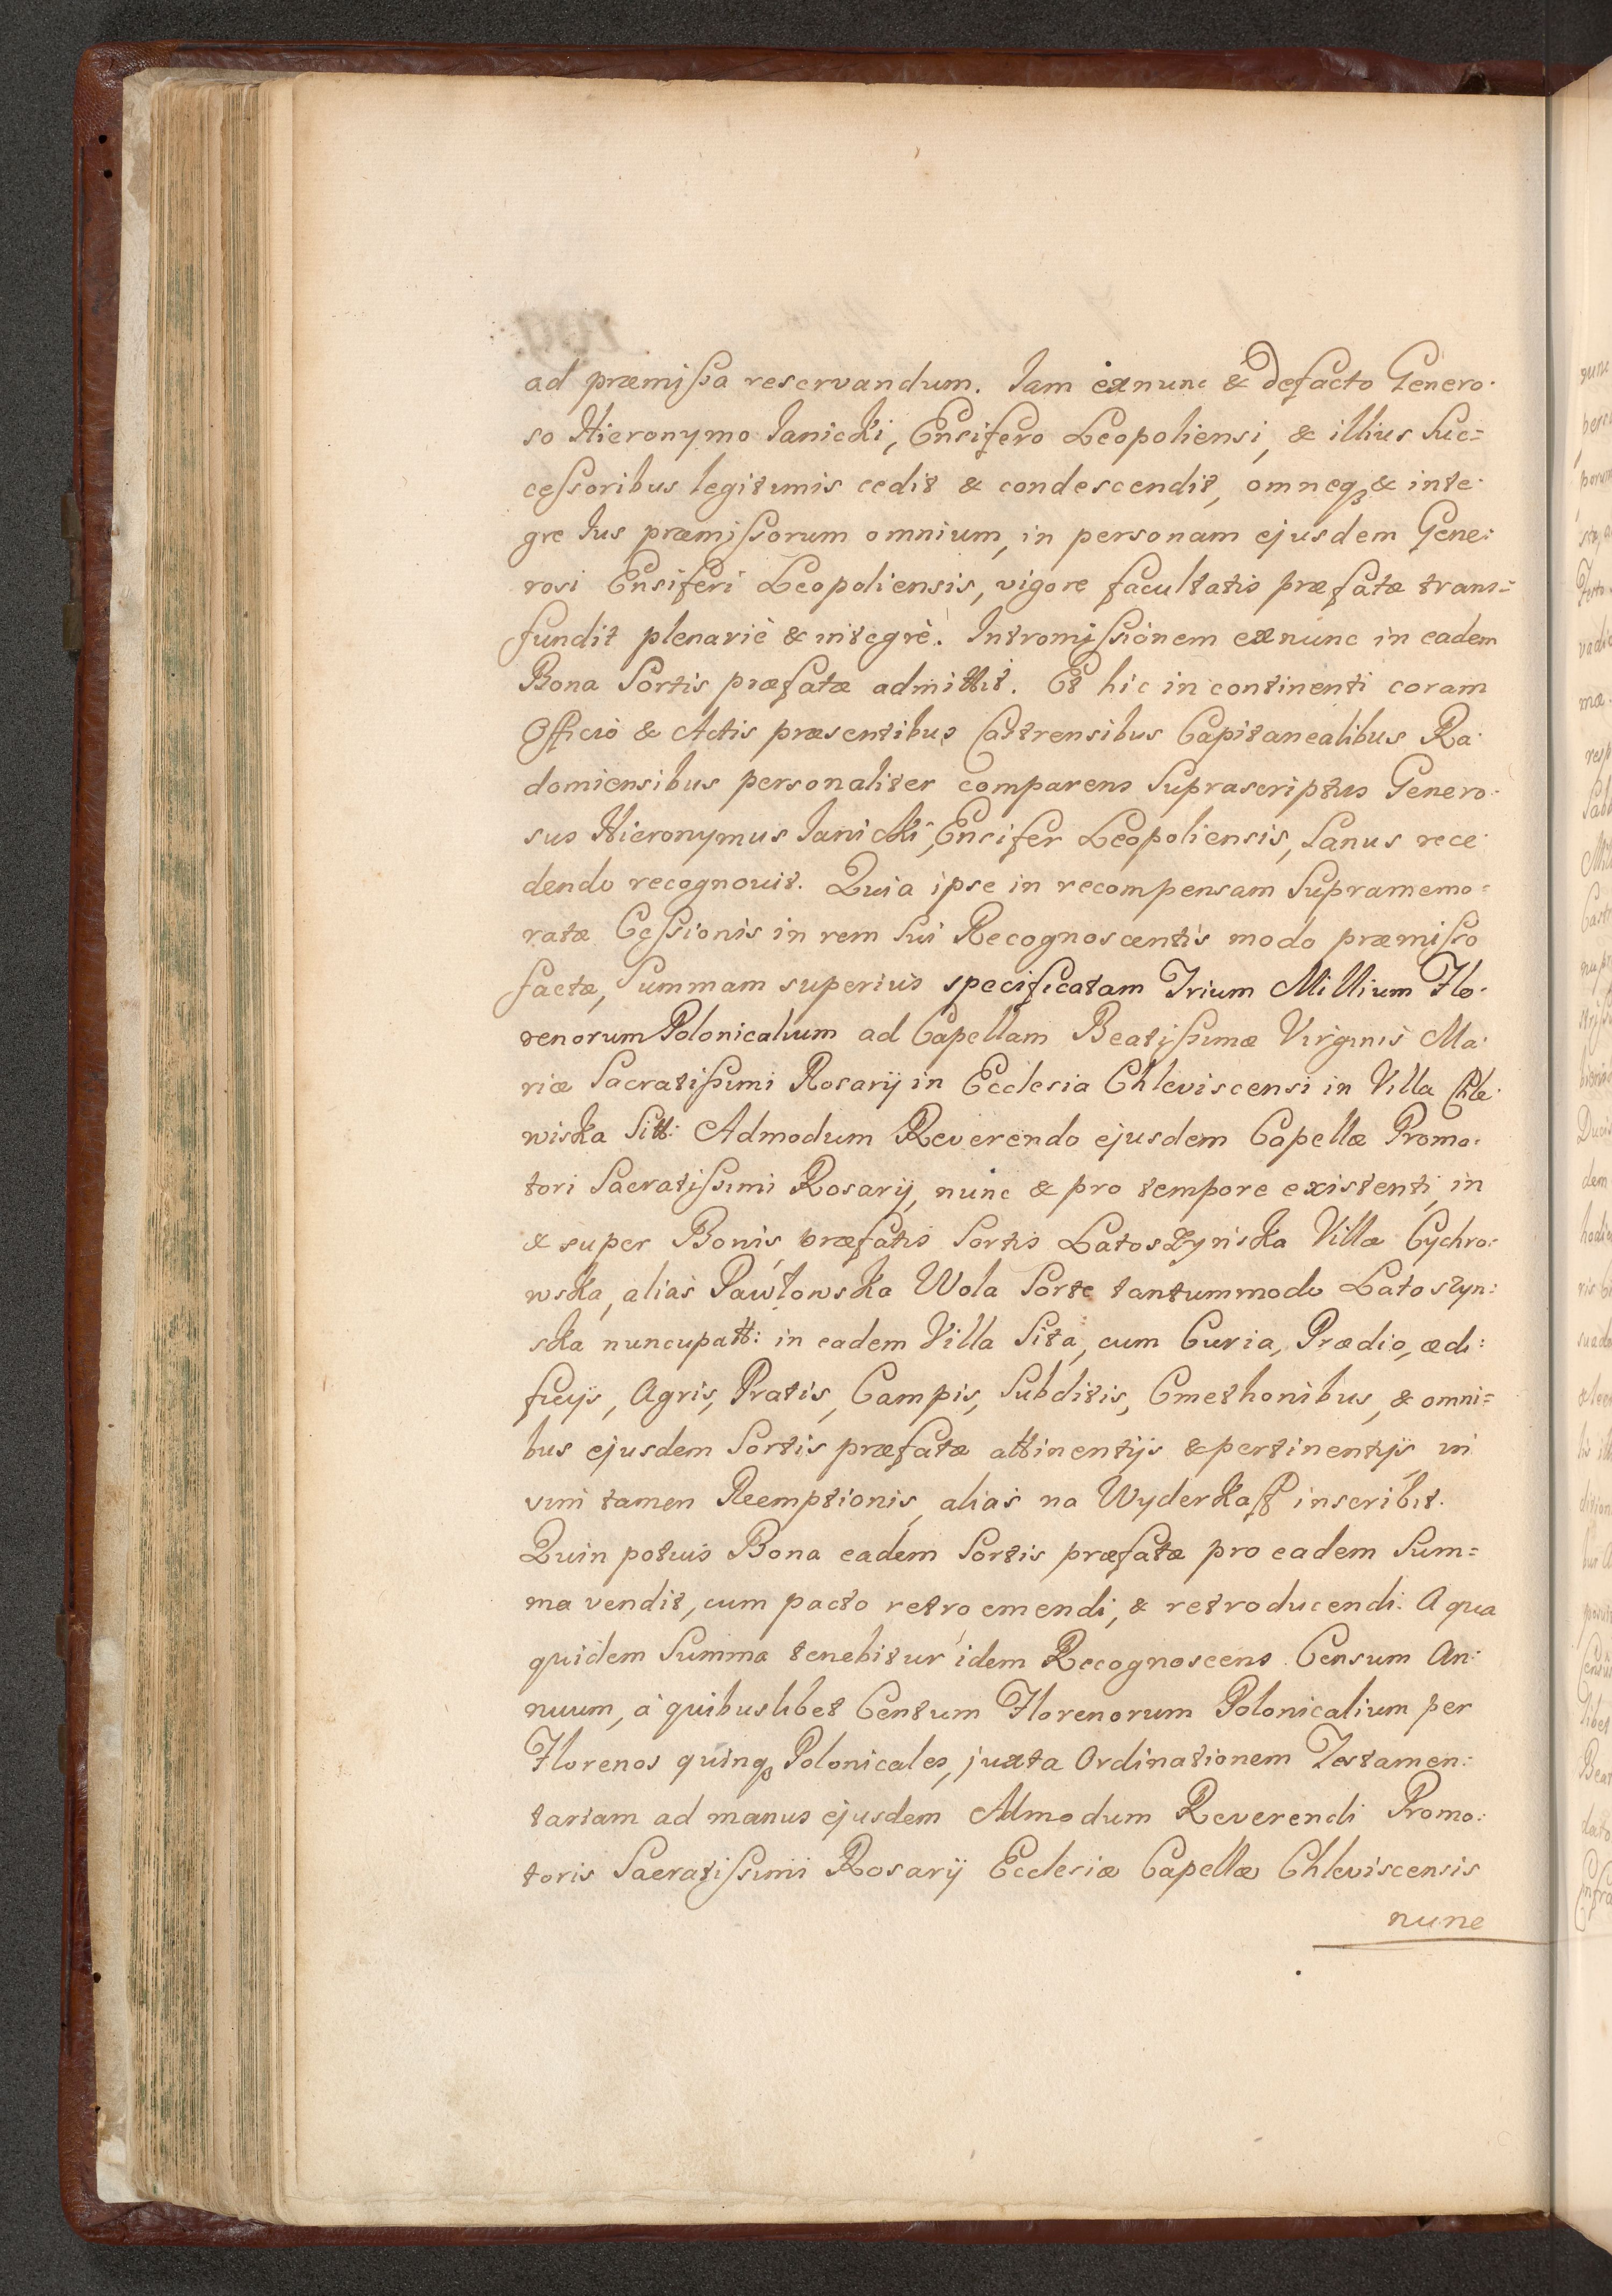 ad præmissa reservandum. Iam exnunc & defacto Genero-
so Hieronymo Ianicki, Ensifero Leopoliensi, & illius Suc=
cessoribus legitimis cedit & condescendit, omneq3 & inte-
gre Ius præmissorum omnium, in personam ejusdem Gene:
rosi Ensiferi Leopoliensis, vigore facultatis præfatæ trans=
fundit plenariè & integrè. Intromissionem exnunc in eadem
Bona Sortis præfatæ admittit. Et hic in continenti coram
Officio & Actis præsentibus Castrensibus Capitanealibus Ra-
domiensibus personaliter comparens Suprascriptus Genero-
sus Hieronymus Ianicki, Ensifer Leopoliensis, Sanus rece-
dendo recognovit. Quia ipse in recompensam Supramemo=
ratæ Cessionis in rem Sui Recognoscentis modo præmisso
factæ, Summam superius specificatam Trium Millium Flo-
renorum Polonicalium ad Capellam Beatissimæ Virginis Ma-
riæ Sacratissimi Rosarij in Ecclesia Chleviscensi in Villa Chle-
wiska Sitt: Admodum Reverendo ejusdem Capellæ Promo-
tori Sacratissimi Rosarij, nunc & pro tempore existenti, in
& super Bonis præfatis Sortis Latoszynska Villæ Cychro:
wska, alias Pawłowska Wola Sorte tantummodo Latoszyn:
ska nuncupatt: in eadem Villa Sita, cum Curia, Prædio, ædi:
ficijs, Agris, Pratis, Campis, Subditis, Cmethonibus, & omni=
bus ejusdem Sortis præfatæ attinentijs & pertinentijs in
vim tamen Reemptionis, alias na Wyderkaff inscribit.
Quin potius Bona eadem Sortis præfatæ pro eadem Sum=
ma vendit, cum pacto retro emendi, & retroducendi. A qua
quidem Summa tenebitur idem Recognoscens Censum An:
nuum, à quibuslibet Centum Florenorum Polonicalium per
Florenos quinq3 Polonicales, juxta Ordinationem Testamen:
tariam ad manus ejusdem Admodum Reverendi Promo:
toris Sacratissimi Rosarij Ecclesiæ Capellæ Chleviscensis
nunc